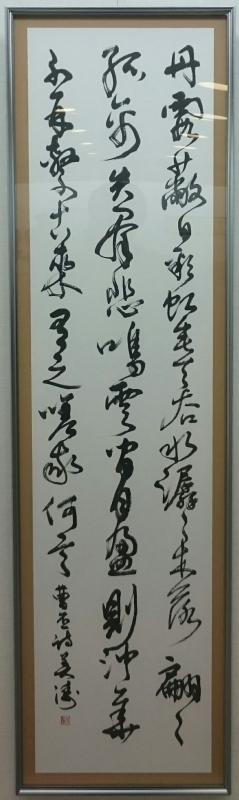 丹霞蔽日彩虹垂天谷水潺々木落翩々
孤禽失群悲鳴雲間月盈則沖華
不再繁古来有之嗟我何言 曹丕詩